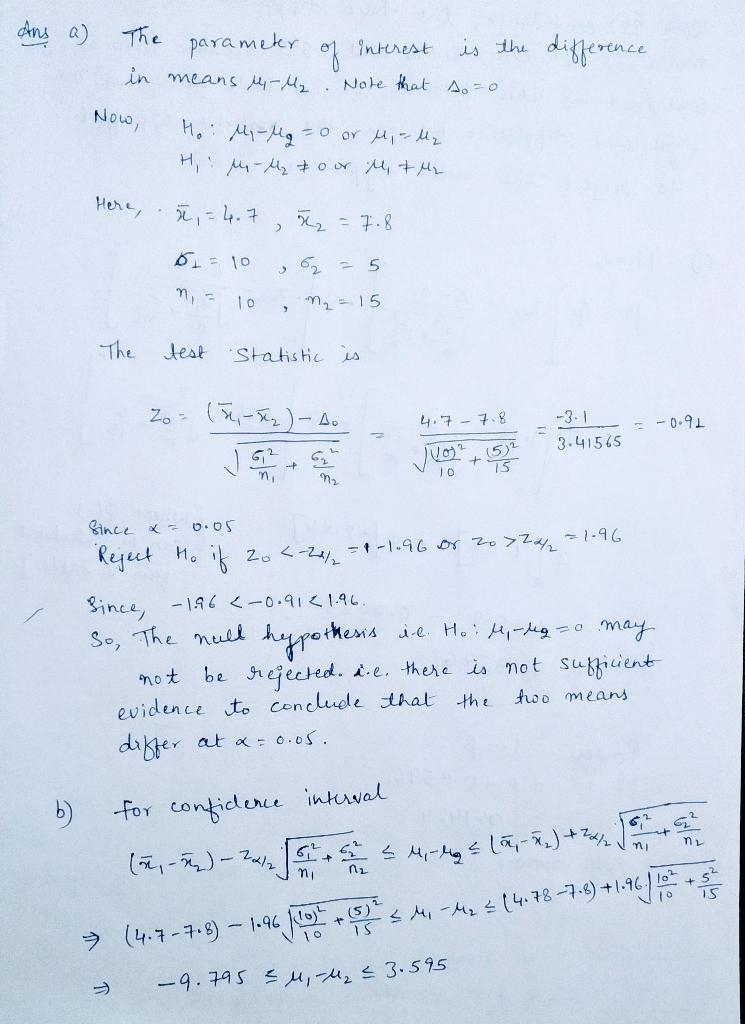 Ans a) The parameter of interest is the difference
in means μ₁-μ₂. Note that Δ₀=0
Now, H₀: μ₁-μ₂ = 0 or μ₁=μ₂
H₁: μ₁-μ₂ ≠ 0 or μ₁ ≠ μ₂
Here, x̄₁ = 4.7, x̄₂ = 7.8
σ₁ = 10, σ₂ = 5
n₁ = 10, n₂ = 15
The test statistic is
Z₀ = ((x̄₁-x̄₂) - Δ₀) / √(σ₁²/n₁ + σ₂²/n₂) = (4.7 - 7.8) / √((10)²/10 + (5)²/15) = -3.1 / 3.41565 = -0.91
Since α = 0.05
Reject H₀ if Z₀ < -Zα/2 = -1.96 or Z₀ > Zα/2 = 1.96
Since, -1.96 < -0.91 < 1.96.
So, The null hypothesis i.e. H₀: μ₁-μ₂ = 0 may
not be rejected. i.e. there is not sufficient
evidence to conclude that the two means
differ at α = 0.05.
b) for confidence interval
(x̄₁-x̄₂) - Zα/2 √(σ₁²/n₁ + σ₂²/n₂) ≤ μ₁-μ₂ ≤ (x̄₁-x̄₂) + Zα/2 √(σ₁²/n₁ + σ₂²/n₂)
⇒ (4.7-7.8) - 1.96 √((10)²/10 + (5)²/15) ≤ μ₁-μ₂ ≤ (4.78-7.8) + 1.96 √(10²/10 + 5²/15)
⇒ -9.795 ≤ μ₁-μ₂ ≤ 3.595